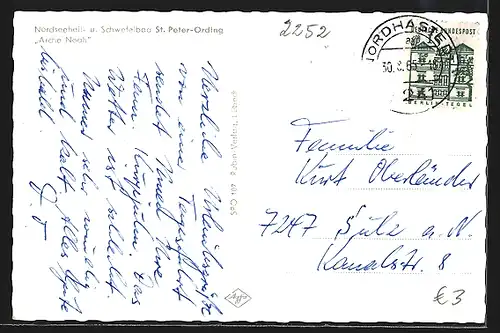 Nordseeheil- u. Schwefelbad St. Peter-Ording
„Arche Noah"
2252
NORDHASTEDT
30.8.65
DEUTSCHE BUNDESPOST
BERLIN-TEGEL
Herzliche Urlaubsgrüße
von einer Tagesfahrt
sendet Ihnen Ihre
Fam. Das
Wetter ist schlecht.
immer sehr windig
und kalt. Alles Gute
Verlag, Lübeck
Agfa
Familie
Kurt Oberländer
7247 Sulz a. N.
Kanalstr. 8
€3